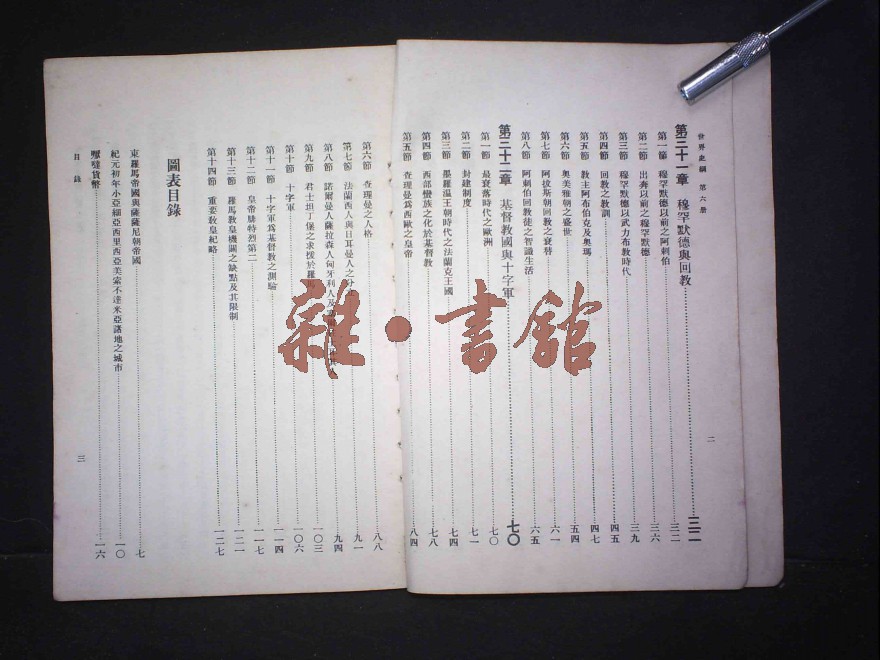 世界史綱 第六册
二
第三十一章 穆罕默德與回教 三二
第一節 穆罕默德以前之阿剌伯 三二
第二節 出奔以前之穆罕默德 三六
第三節 穆罕默德以武力布教時代 三九
第四節 回教之教訓 四五
第五節 教主阿布伯克及奧瑪 四七
第六節 奧美雅朝之盛世 五四
第七節 阿拔斯朝回教之衰替 六一
第八節 阿剌伯回教徒之智識生活 六五
第三十二章 基督教國與十字軍 七〇
第一節 最衰落時代之歐洲 七〇
第二節 封建制度 七一
第三節 墨羅溫王朝時代之法蘭克王國 七四
第四節 西部蠻族之化於基督教 七八
第五節 查理曼爲西歐之皇帝 八四
第六節 查理曼之人格 八八
第七節 法蘭西人與日耳曼人之 九一
第八節 諾爾曼人薩拉森人匈牙利人及 九四
第九節 君士坦丁堡之求援於羅馬 一〇三
第十節 十字軍 一〇六
第十一節 十字軍爲基督教之測驗 一一四
第十二節 皇帝腓特烈第二 一一七
第十三節 羅馬教皇機關之缺點及其限制 一二一
第十四節 重要教皇紀略 一二七
圖表目錄
東羅馬帝國與薩薩尼朝帝國 七
紀元初年小亞細亞西里西亞美索不達米亞諸地之城市 一〇
嚈噠貨幣 一六
目錄
三
雜·書館